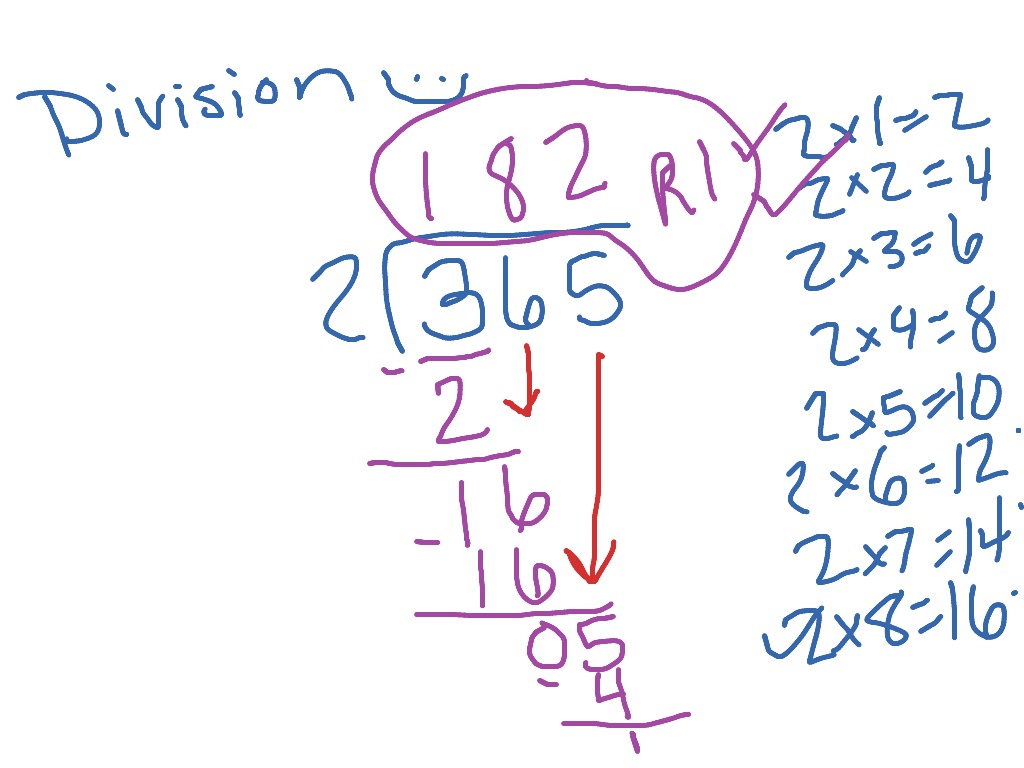 Division
182 R1
2 365
- 2
16
- 16
05
- 4
1
2×1=2
2×2=4
2×3=6
2×4=8
2×5=10
2×6=12
2×7=14
2×8=16